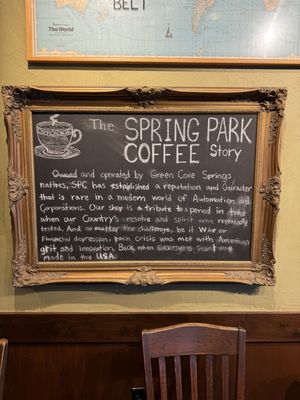 BELT
The World
The SPRING PARK
COFFEE Story
Owned and operated by Green Cove Springs
natives, SPC has established a reputation and Character
that is rare in a modern world of Automation and
Corporations. Our shop is a tribute to a period in time
when our Country's resolve and spirit were repeatedly
tested. And no matter the challenge, be it War or
Financial depression, each crisis was met with American
grit and innovation. Back when everything great was
made in the USA